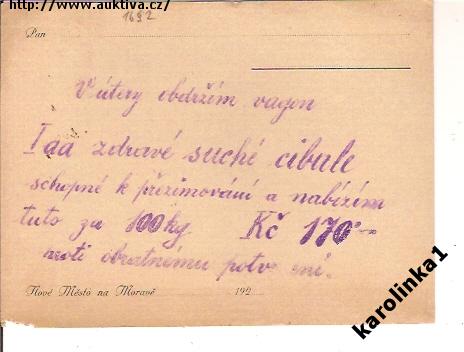 http://www.auktiva.cz/
1692
Pan
V úterý obdržím vagon
I aa zdravé suché cibule
schopné k přezimování a nabízím
tuto za 100 kg. Kč 170·—
proti obratnému potvrzení.
Nové Město na Moravě 192
karolinka1